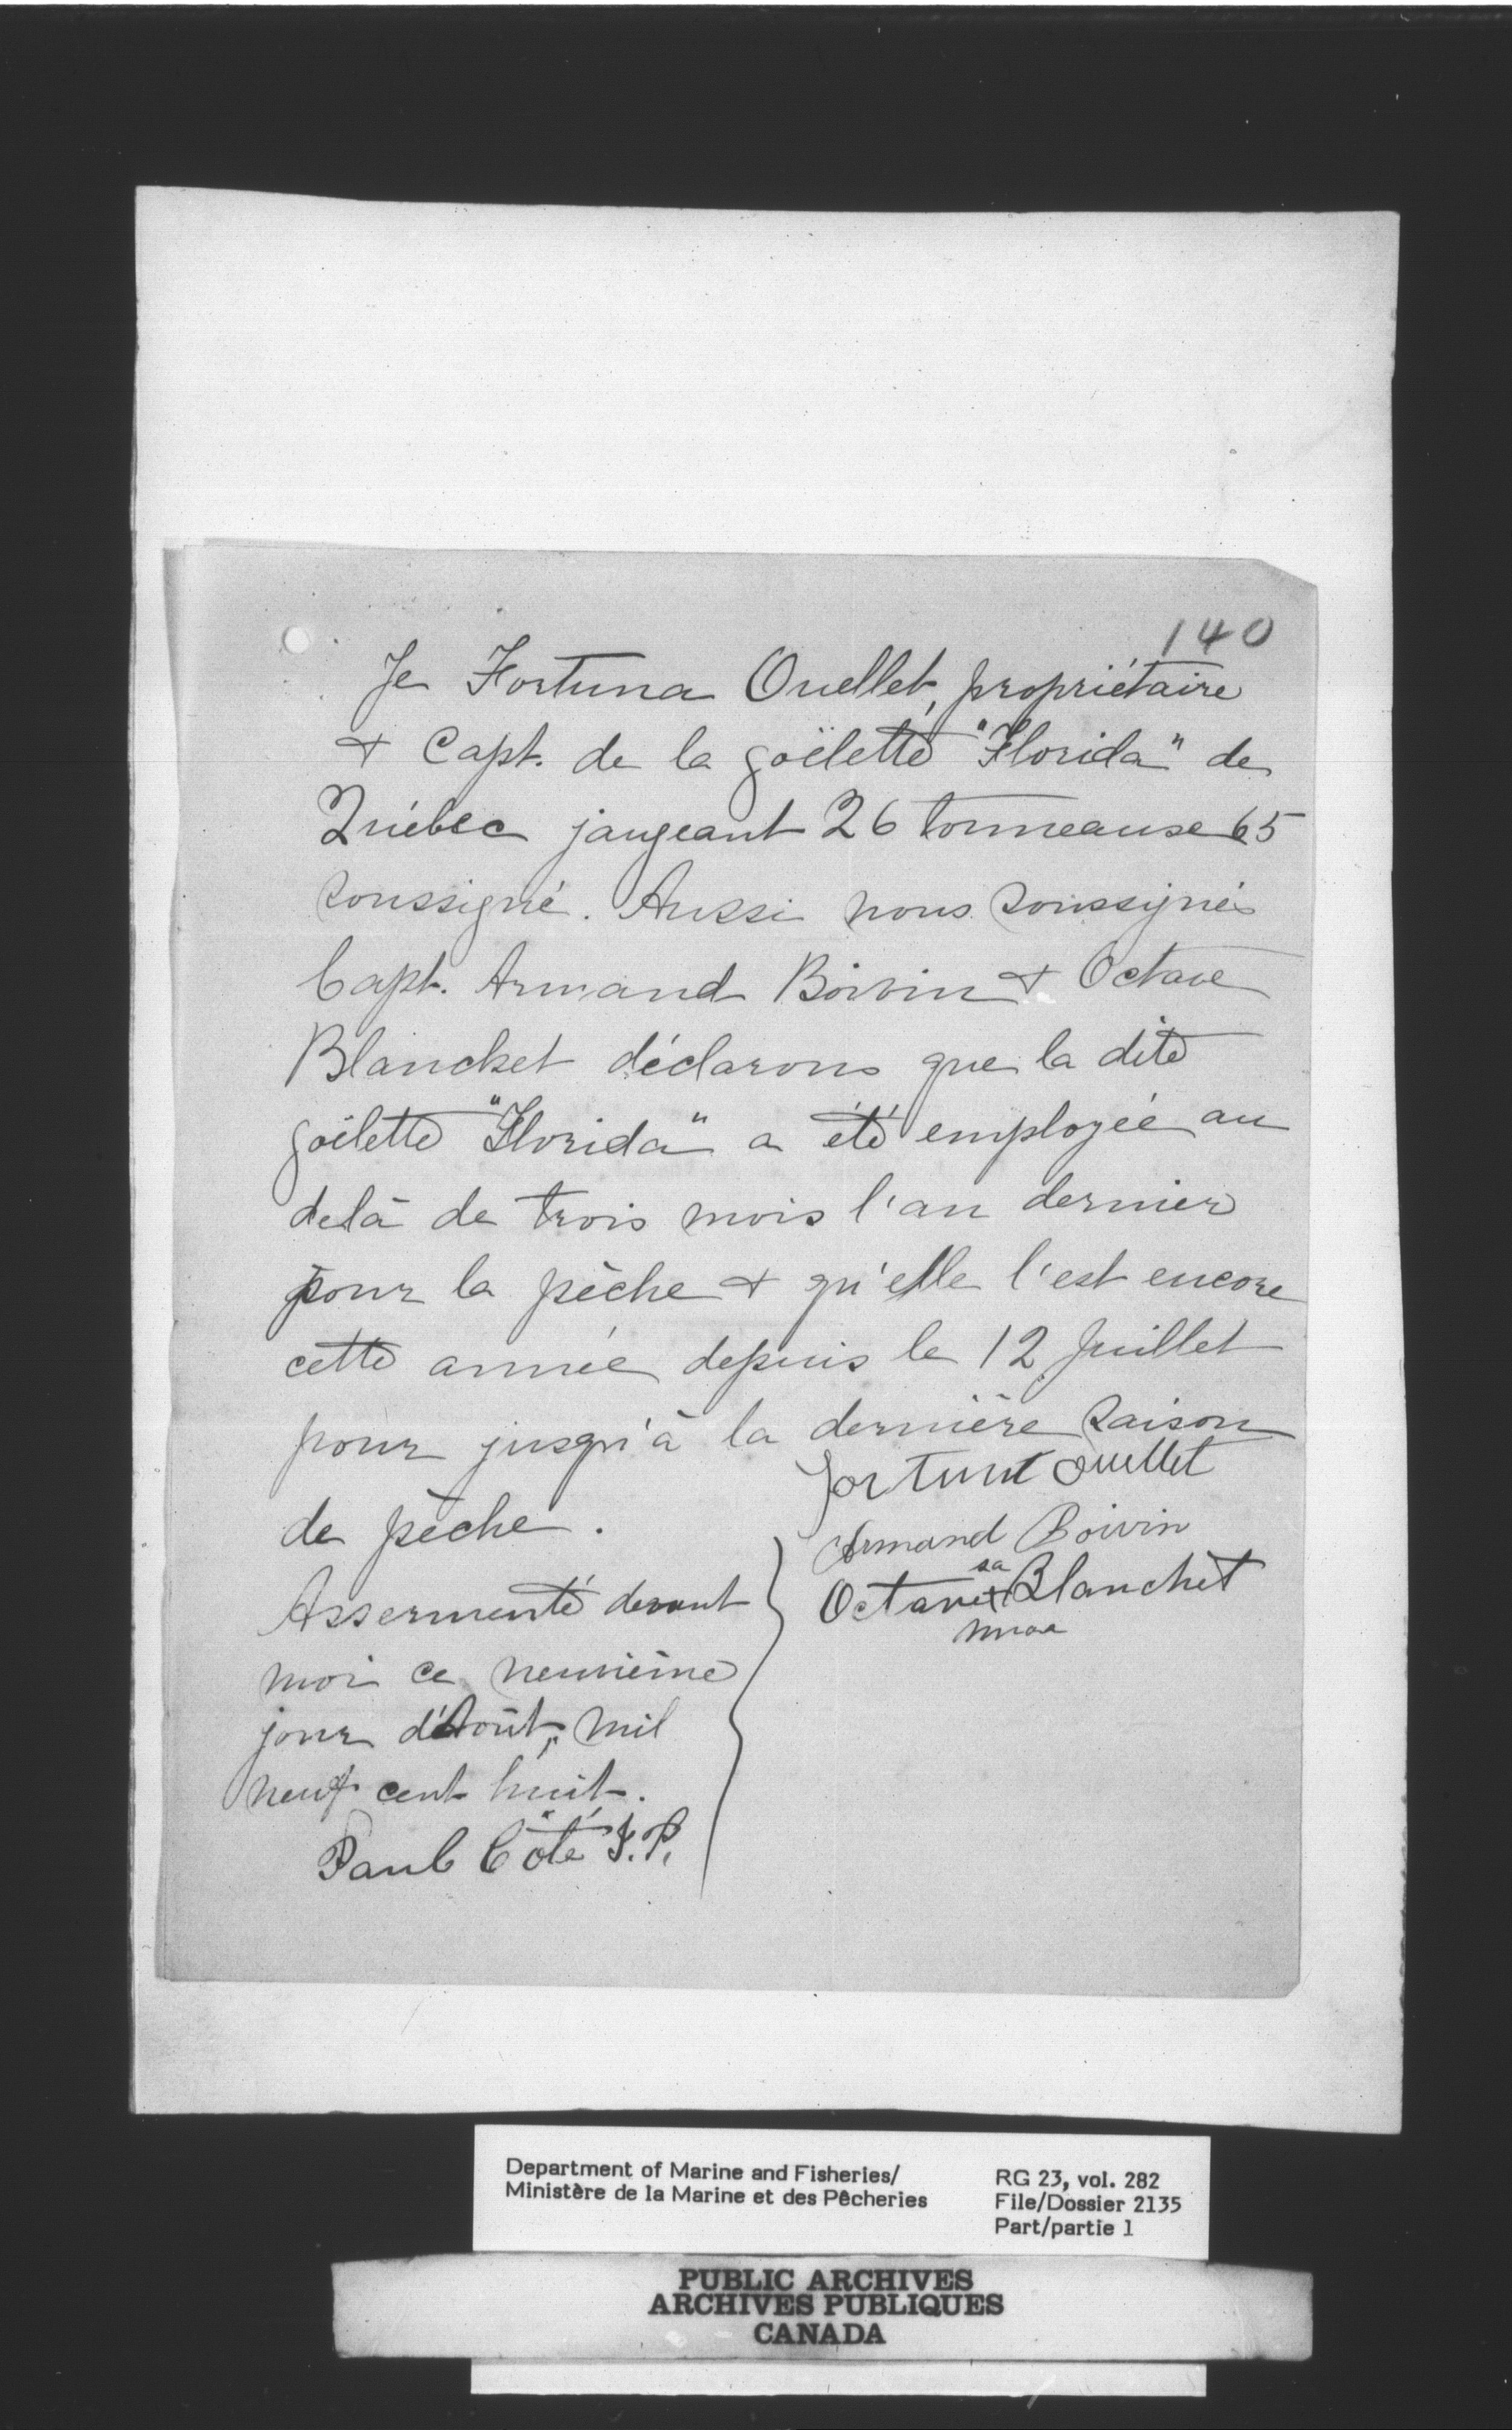 140
Je Fortuna Ouellet, propriétaire
& Capt. de la goëlette "Florida" de
Québec jaugeant 26 tonneause 65
soussigné. Aussi nous soussignés
Capt. Armand Boivin & Octave
Blanchet déclarons que la dite
goëlette "Florida" a été employée au
delà de trois mois l'an dernier
pour la pèche & qu'elle l'est encore
cette année depuis le 12 Juillet
pour jusqu'à la dernière saison
de pèche.
fortuna ouellet
Armand Boivin
sa
Octave + Blanchet
Assermenté devant
moi ce neuvième
jour d'Août, mil
neuf cent huit.
Paul Côté J.P.
Department of Marine and Fisheries/
Ministère de la Marine et des Pêcheries
RG 23, vol. 282
File/Dossier 2135
Part/partie 1
PUBLIC ARCHIVES
ARCHIVES PUBLIQUES
CANADA